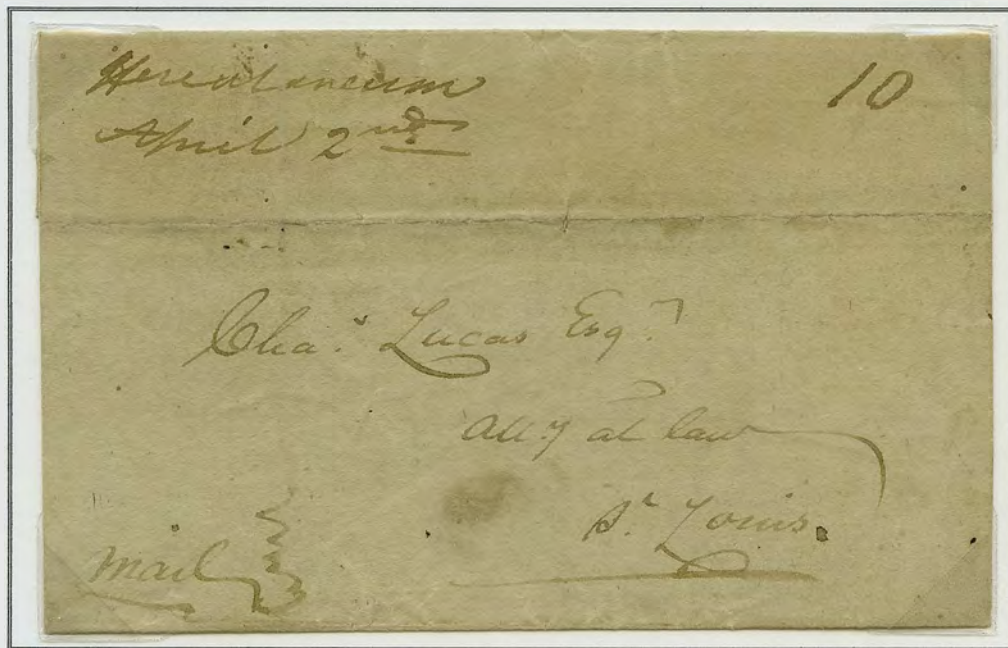 Herculaneum 10
April 2nd
Chas. Lucas Esqr
atty at law
St. Louis.
Mail